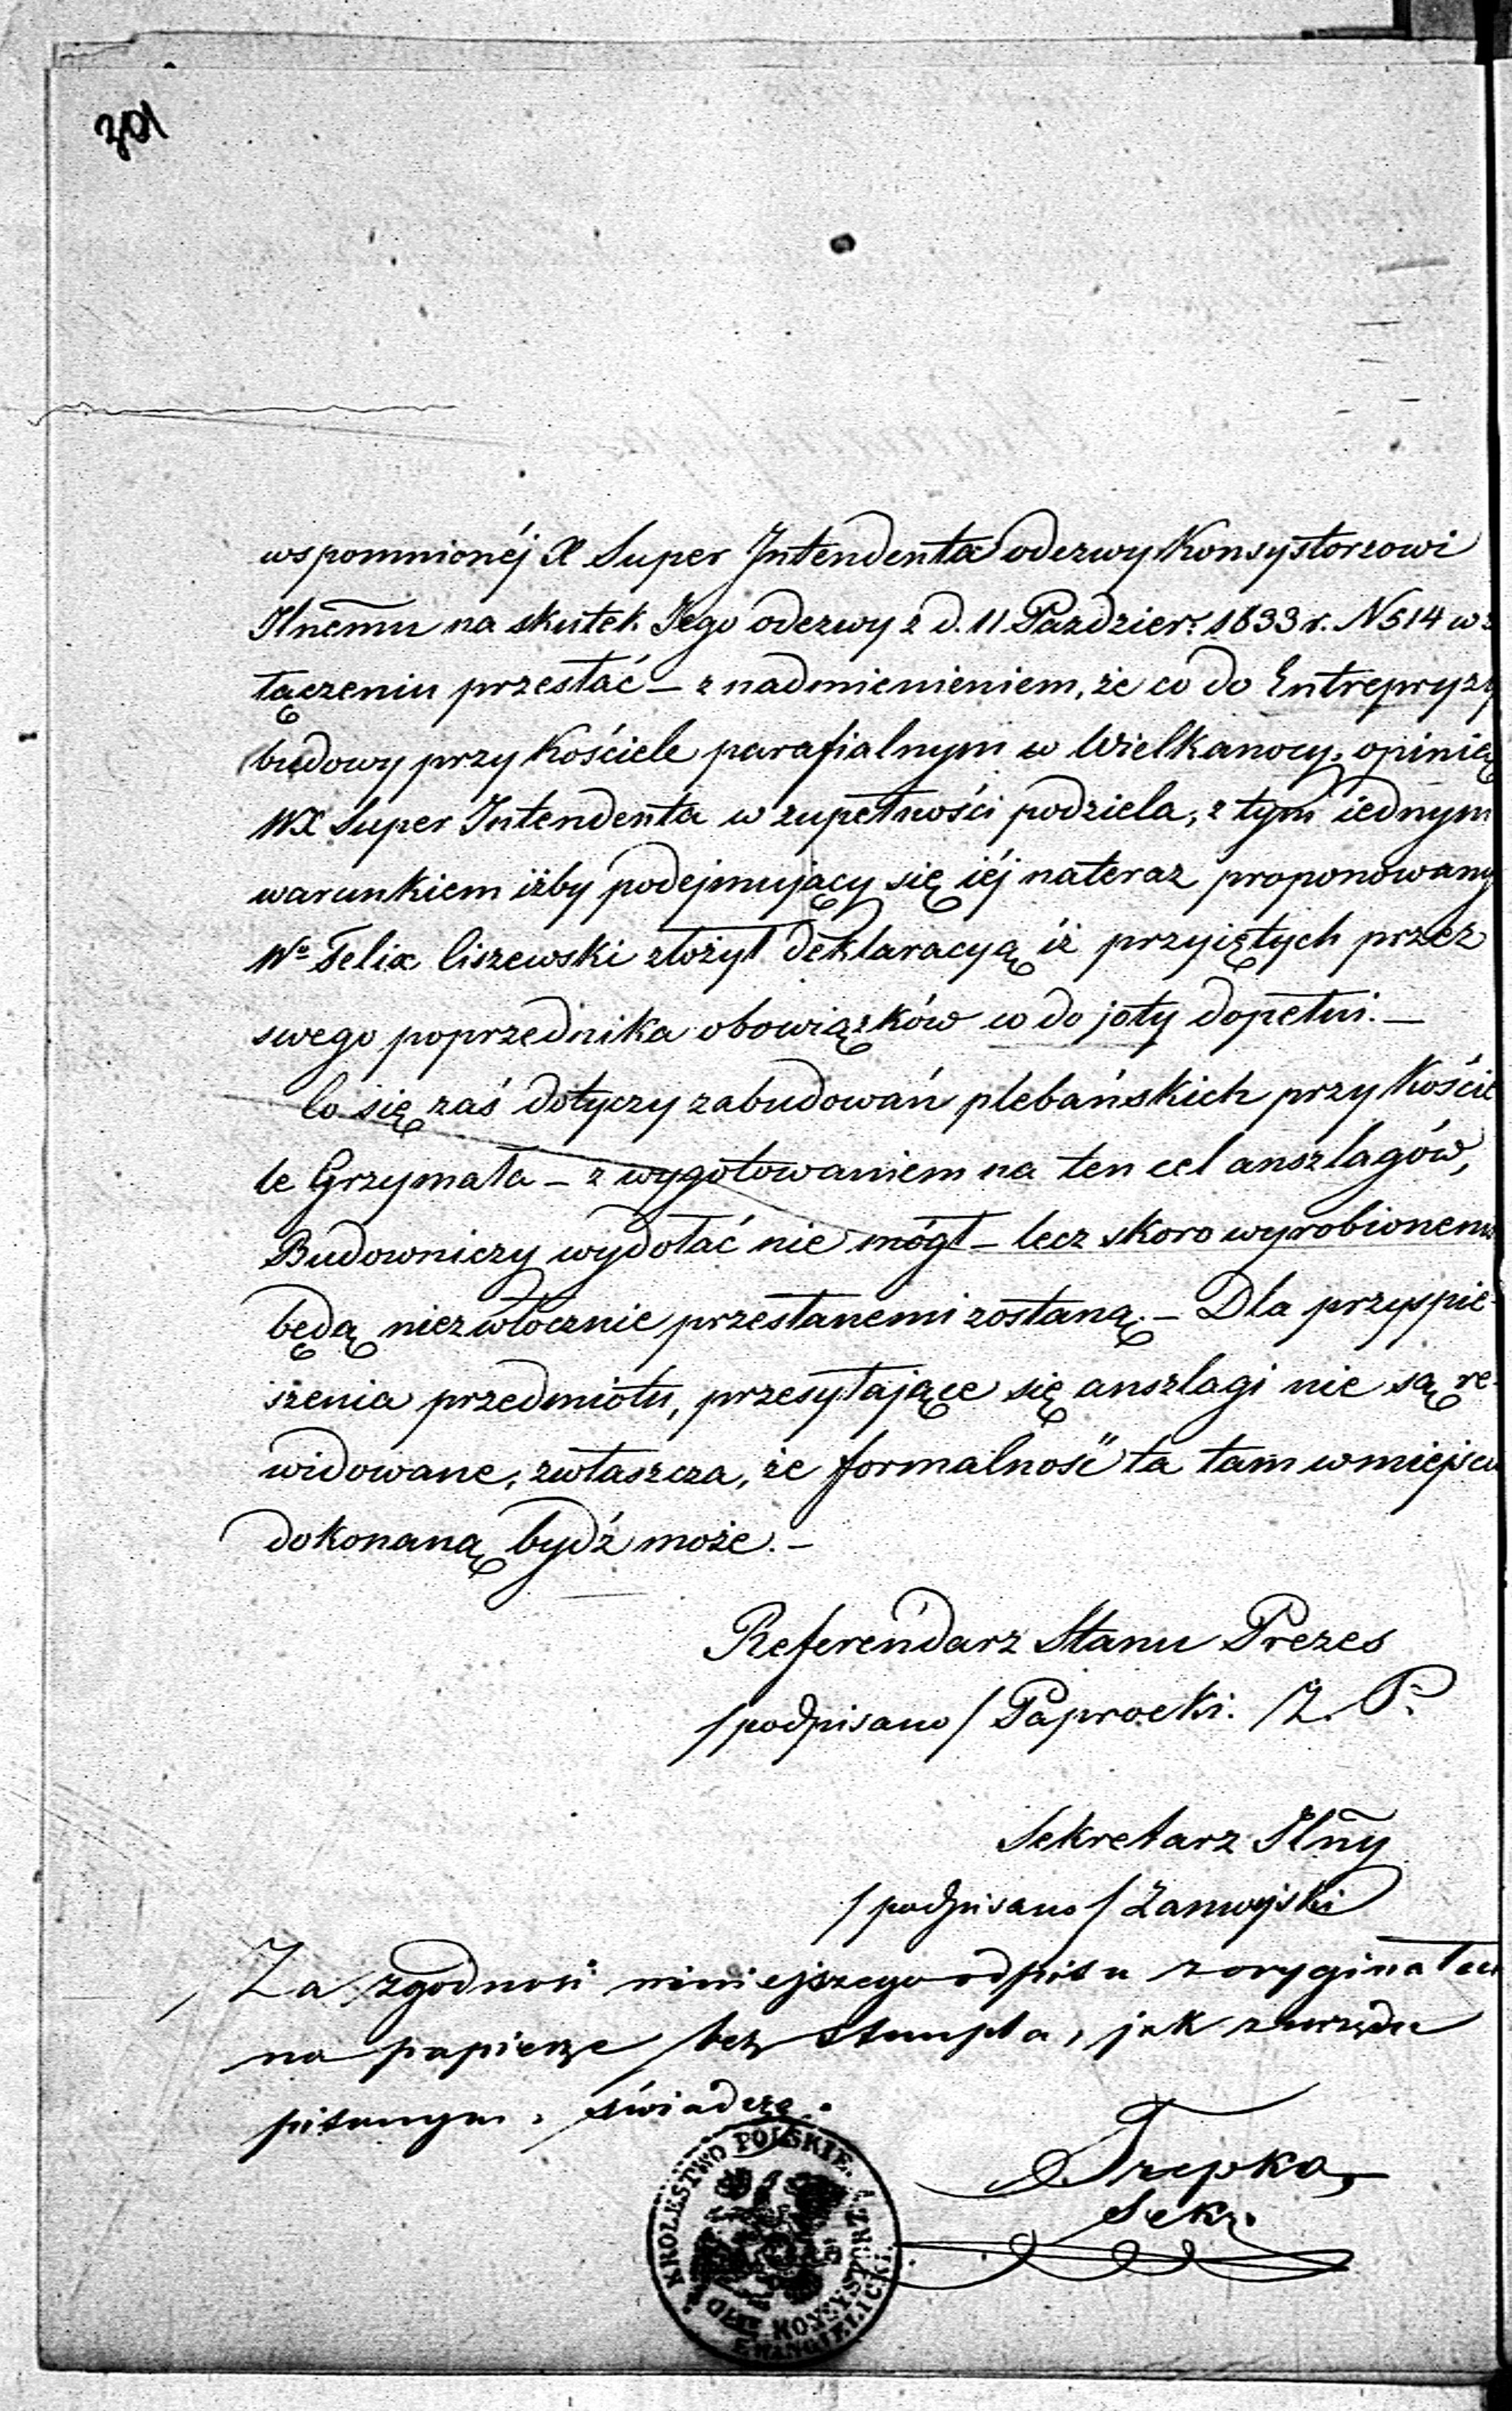 301
wspomnionéj X Super Intendenta odezwy Konsystorzowi
Jlnemu na skutek Jego odezwy z d. 11 Paździer. 1833 r. N 514 w z
łączeniu przesłać – z nadmienieniem, że co do Entrepryzy
budowy przy Kościele parafialnym w Wielkanocy, opinią
WX Super Intendenta w zupełności podziela, z tym iednym
warunkiem iżby podejmujący się iéj nateraz proponowany
Wo Felix Ciszewski złożył deklaracyą iż przyiętych przez
swego poprzednika obowiązków co do joty dopełni. –
Co się zaś dotyczy zabudowań plebańskich przy Kościé
le Grzymała – z wygotowaniem na ten cel anszlagów,
Budowniczy wydołać nie mógł – lecz skoro wyrobionemi
będą niezwłocznie przesłanemi zostaną. – Dla przyspie-
szenia przedmiotu, przesyłające się anszlagi nie są re-
widowane, zwłaszcza, że formalność ta tam w miejscu
dokonaną bydź może. –
Referendarz Stanu Prezes
/podpisano/ Paprocki. /Z. P.
Sekretarz Jlny
/podpisano/ Zamojski
Za zgodność niniejszego odpisu z oryginałem
na papierze bez stempla, jak z urzędu
pisanym, świadczę.
Trepka,
Sekr.
KROLESTWO POLSKIE.
GEN: KONSYSTORZ
EWANGIELICKI